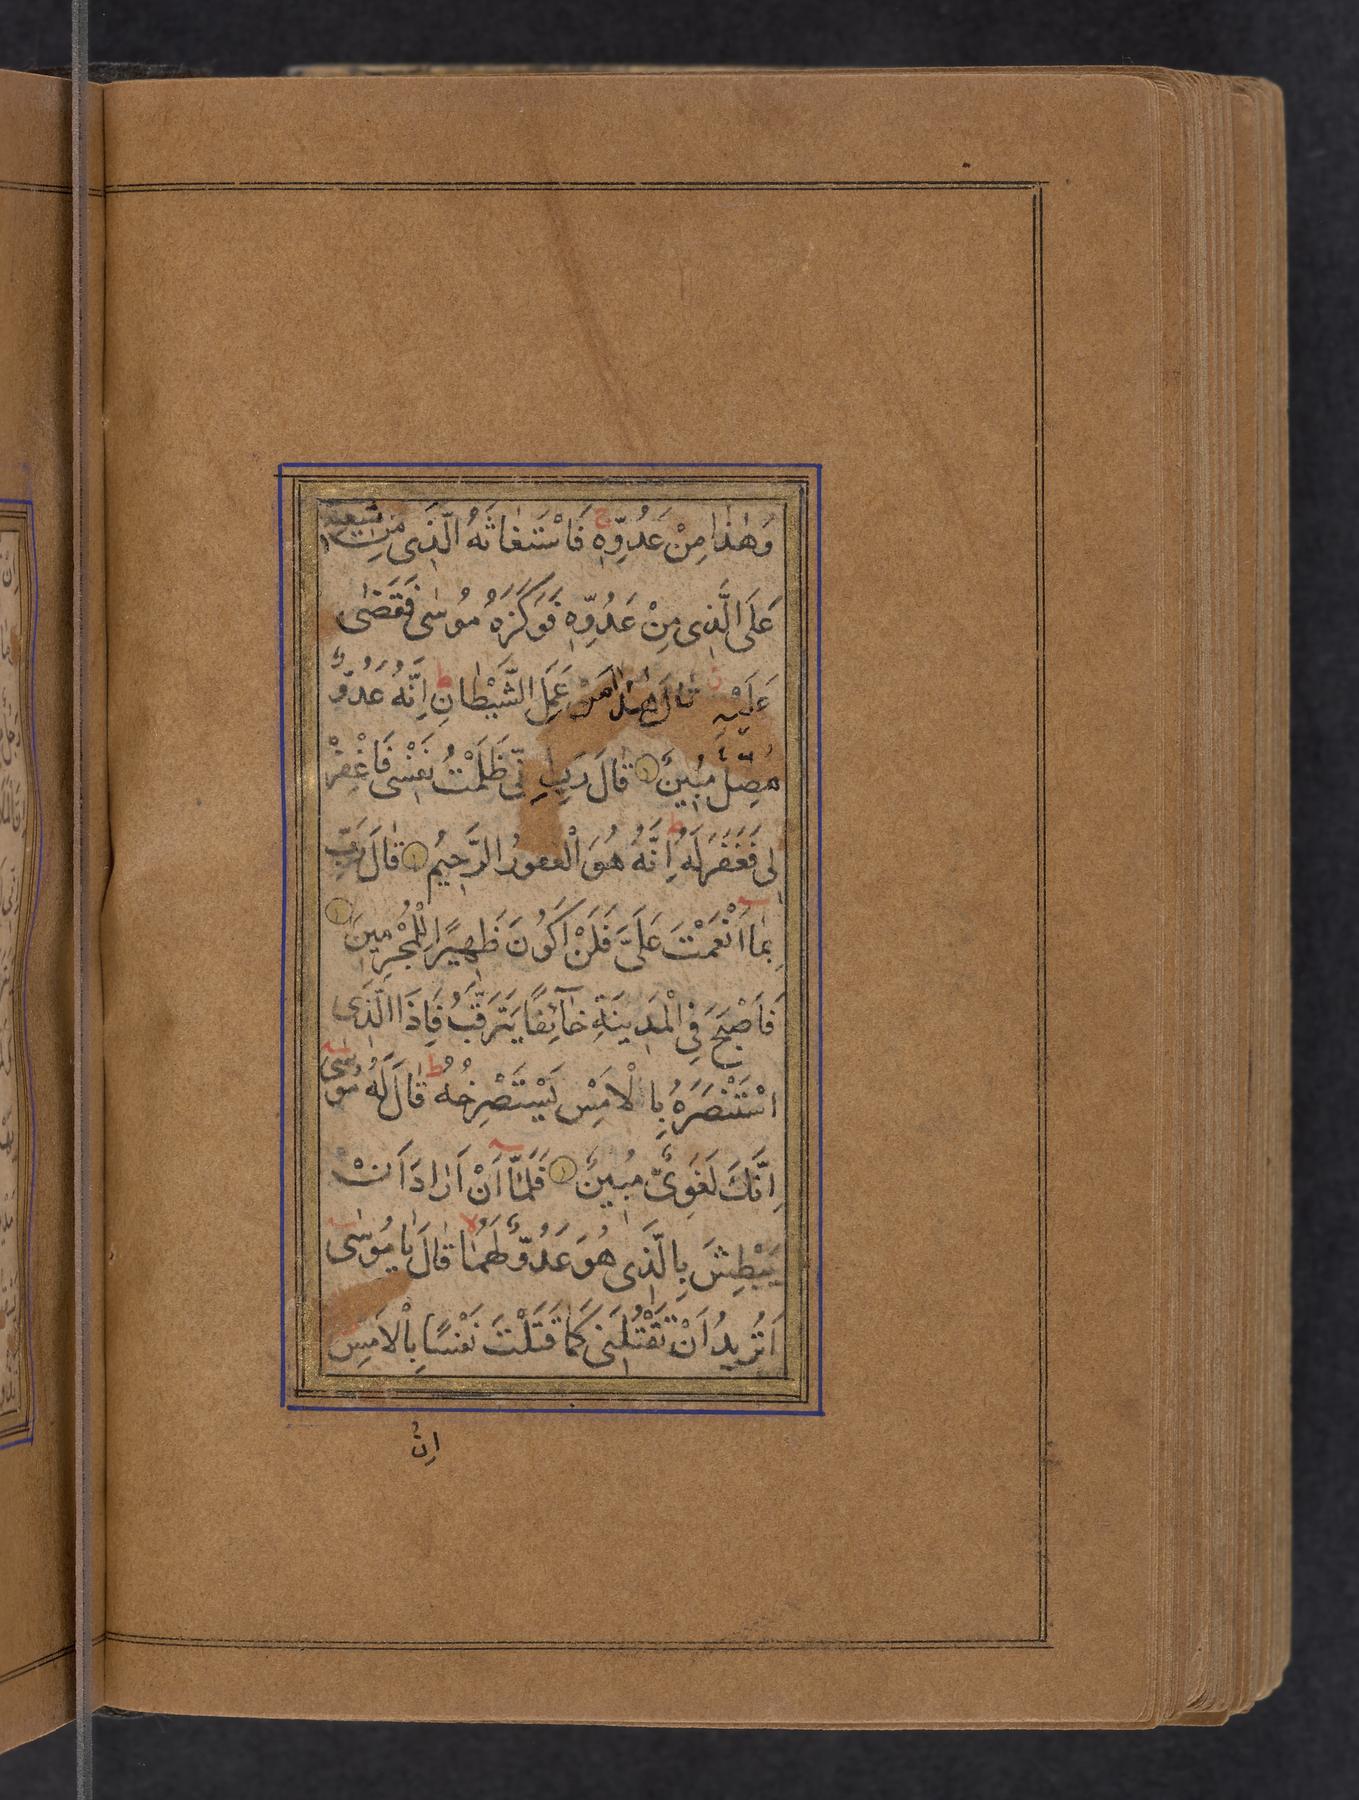 وَهٰذٰا مِنْ عَدُوِّهٖ فَاسْتَغٰاثَهُ الَّذٖى مِنْ شٖيعَتِهٖ
عَلَى الَّذٖى مِنْ عَدُوِّهٖ فَوَكَزَهُ مُوسٰى فَقَضٰى
عَلَيْهِ قٰالَ هٰذٰا مِنْ عَمَلِ الشَّيْطٰانِ اِنَّهُ عَدُوٌّ
مُضِلٌّ مُبٖينٌ قٰالَ رَبِّ اِنّٖى ظَلَمْتُ نَفْسٖى فَاغْفِرْ
لٖى فَغَفَرَ لَهُ اِنَّهُ هُوَ الْغَفُورُ الرَّحٖيمُ قٰالَ رَبِّ
بِمٰا اَنْعَمْتَ عَلَىَّ فَلَنْ اَكُونَ ظَهٖيرًا لِلْمُجْرِمٖينَ
فَاَصْبَحَ فِى الْمَدٖينَةِ خٰائِفًا يَتَرَقَّبُ فَاِذَا الَّذِى
اسْتَنْصَرَهُ بِالْاَمْسِ يَسْتَصْرِخُهُ قٰالَ لَهُ مُوسٰى
اِنَّكَ لَغَوِىٌّ مُبٖينٌ فَلَمّٰا اَنْ اَرٰادَ اَنْ
يَبْطِشَ بِالَّذٖى هُوَ عَدُوٌّ لَهُمٰا قٰالَ يٰا مُوسٰى
اَتُرٖيدُ اَنْ تَقْتُلَنٖى كَمٰا قَتَلْتَ نَفْسًا بِالْاَمْسِ
اِنْ